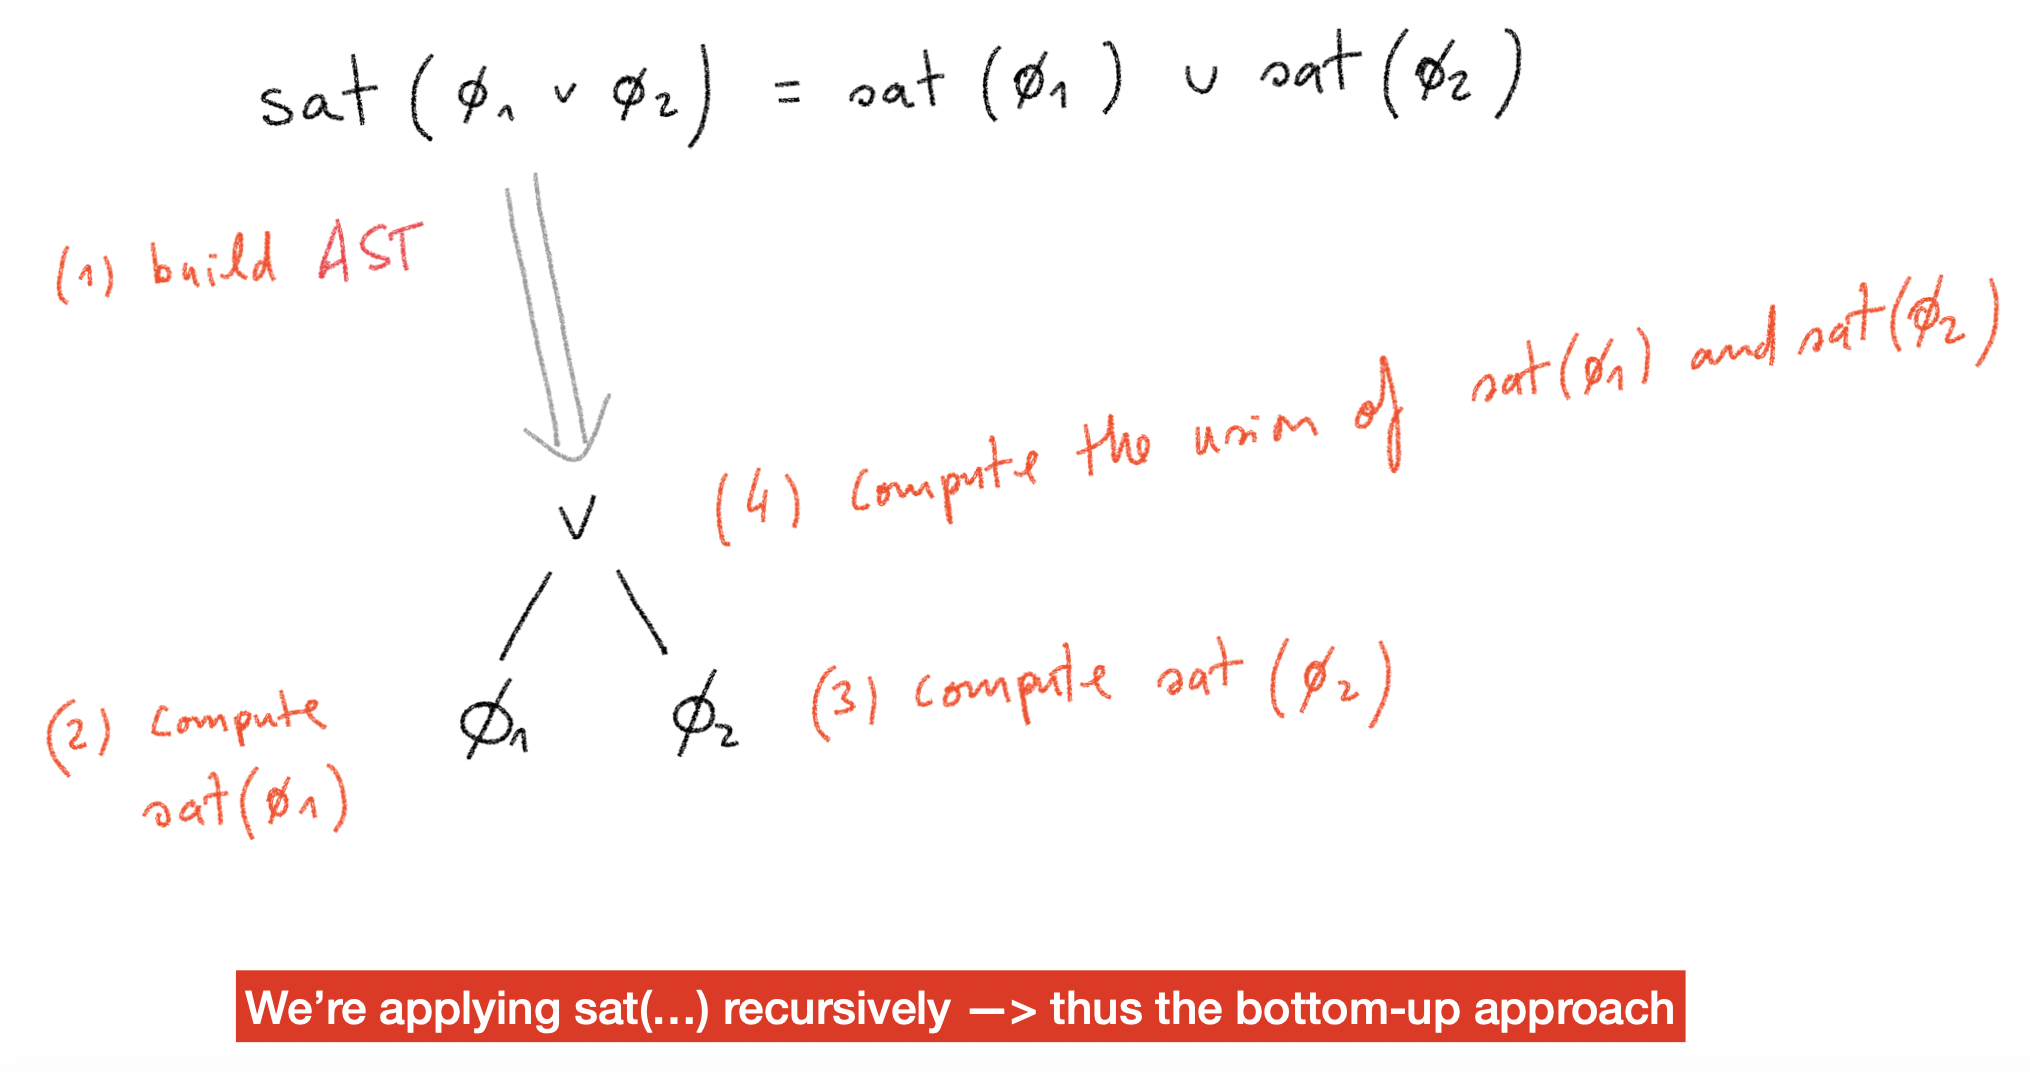 sat (ϕ₁ ∨ ϕ₂) = sat (ϕ₁) ∪ sat (ϕ₂)
(1) build AST
(4) compute the union of sat(ϕ₁) and sat(ϕ₂)
∨
ϕ₁ ϕ₂
(2) compute
sat(ϕ₁)
(3) compute sat (ϕ₂)
We’re applying sat(…) recursively —> thus the bottom-up approach